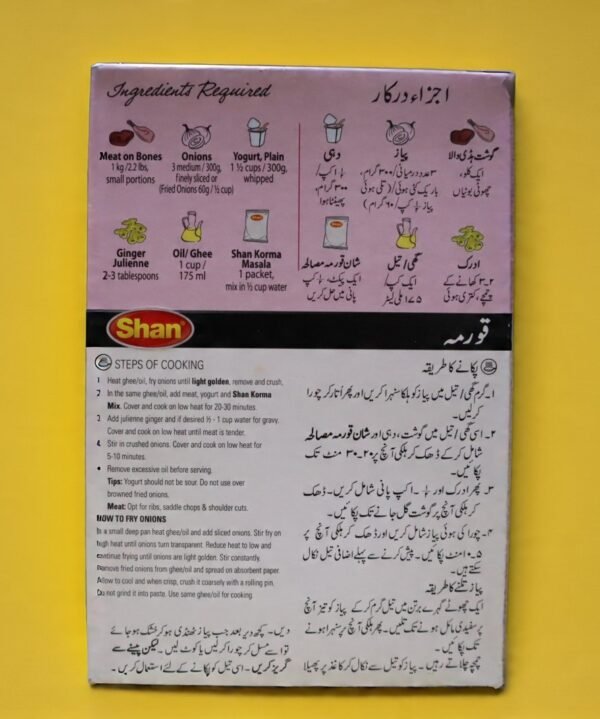 Ingredients Required
Meat on Bones
1 kg/2.2 lbs,
small portions
Onions
3 medium / 300g,
finely sliced or
(Fried Onions 60g / ½ cup)
Yogurt, Plain
1 ½ cups / 300g,
whipped
Ginger
Julienne
2-3 tablespoons
Oil/ Ghee
1 cup /
175 ml
Shan Korma
Masala
1 packet,
mix in ½ cup water
اجزاء درکار
گوشت ہڈی والا
ایک کلو،
چھوٹی بوٹیاں
پیاز
۳عدد درمیانی/۳۰۰گرام،
باریک کٹی ہوئی/(تلی ہوئی
پیاز ½ کپ/ ۶۰گرام)
دہی
½ ۱کپ/
۳۰۰گرام،
پھینٹا ہوا
ادرک
۲-۳ کھانے کے
چمچے، کتری ہوئی
گھی/ تیل
ایک کپ/
۱۷۵ملی لیٹر
شان قورمہ مصالحہ
ایک پیکٹ، ½ کپ
پانی میں حل کریں
Shan®
قورمہ
STEPS OF COOKING
1 Heat ghee/oil, fry onions until light golden, remove and crush.
2 In the same ghee/oil, add meat, yogurt and Shan Korma
Mix. Cover and cook on low heat for 20-30 minutes.
3 Add julienne ginger and if desired ½ - 1 cup water for gravy.
Cover and cook on low heat until meat is tender.
4 Stir in crushed onions. Cover and cook on low heat for
5-10 minutes.
• Remove excessive oil before serving.
Tips: Yogurt should not be sour. Do not use over
browned fried onions.
Meat: Opt for ribs, saddle chops & shoulder cuts.
HOW TO FRY ONIONS
In a small deep pan heat ghee/oil and add sliced onions. Stir fry on
high heat until onions turn transparent. Reduce heat to low and
continue frying until onions are light golden. Stir constantly.
Remove fried onions from ghee/oil and spread on absorbent paper.
Allow to cool and when crisp, crush it coarsely with a rolling pin.
Do not grind it into paste. Use same ghee/oil for cooking.
پکانے کا طریقہ
۱۔ گرم گھی/ تیل میں پیاز کو ہلکا سنہرا کریں اور پھر اُتار کر چورا
کرلیں۔
۲۔ اسی گھی/ تیل میں گوشت، دہی اور شان قورمہ مصالحہ
شامل کرکے ڈھک کر ہلکی آنچ پر ۲۰-۳۰ منٹ تک
پکائیں۔
۳۔ پھر ادرک اور ½ - ۱کپ پانی شامل کریں۔ ڈھک
کر ہلکی آنچ پر گوشت گل جانے تک پکائیں۔
۴۔ چورا کی ہوئی پیاز شامل کریں اور ڈھک کر ہلکی آنچ پر
۵-۱۰ منٹ پکائیں۔ پیش کرنے سے پہلے اضافی تیل نکال
سکتے ہیں۔
پیاز تلنے کا طریقہ
ایک چھوٹے گہرے برتن میں تیل گرم کرکے پیاز کو تیز آنچ
پر سفیدی مائل ہونے تک تلیں۔ پھر ہلکی آنچ پر سنہرا ہونے
تک پکائیں۔
چمچہ چلاتے رہیں۔ پیاز کو تیل سے نکال کر کاغذ پر پھیلا
دیں۔ کچھ دیر بعد جب پیاز ٹھنڈی ہوکر خشک ہوجائے
تو اسے مسل کر چورا کرلیں یا کوٹ لیں۔ لیکن پیسنے سے
گریز کریں۔ اسی تیل کو پکانے کے لئے استعمال کریں۔